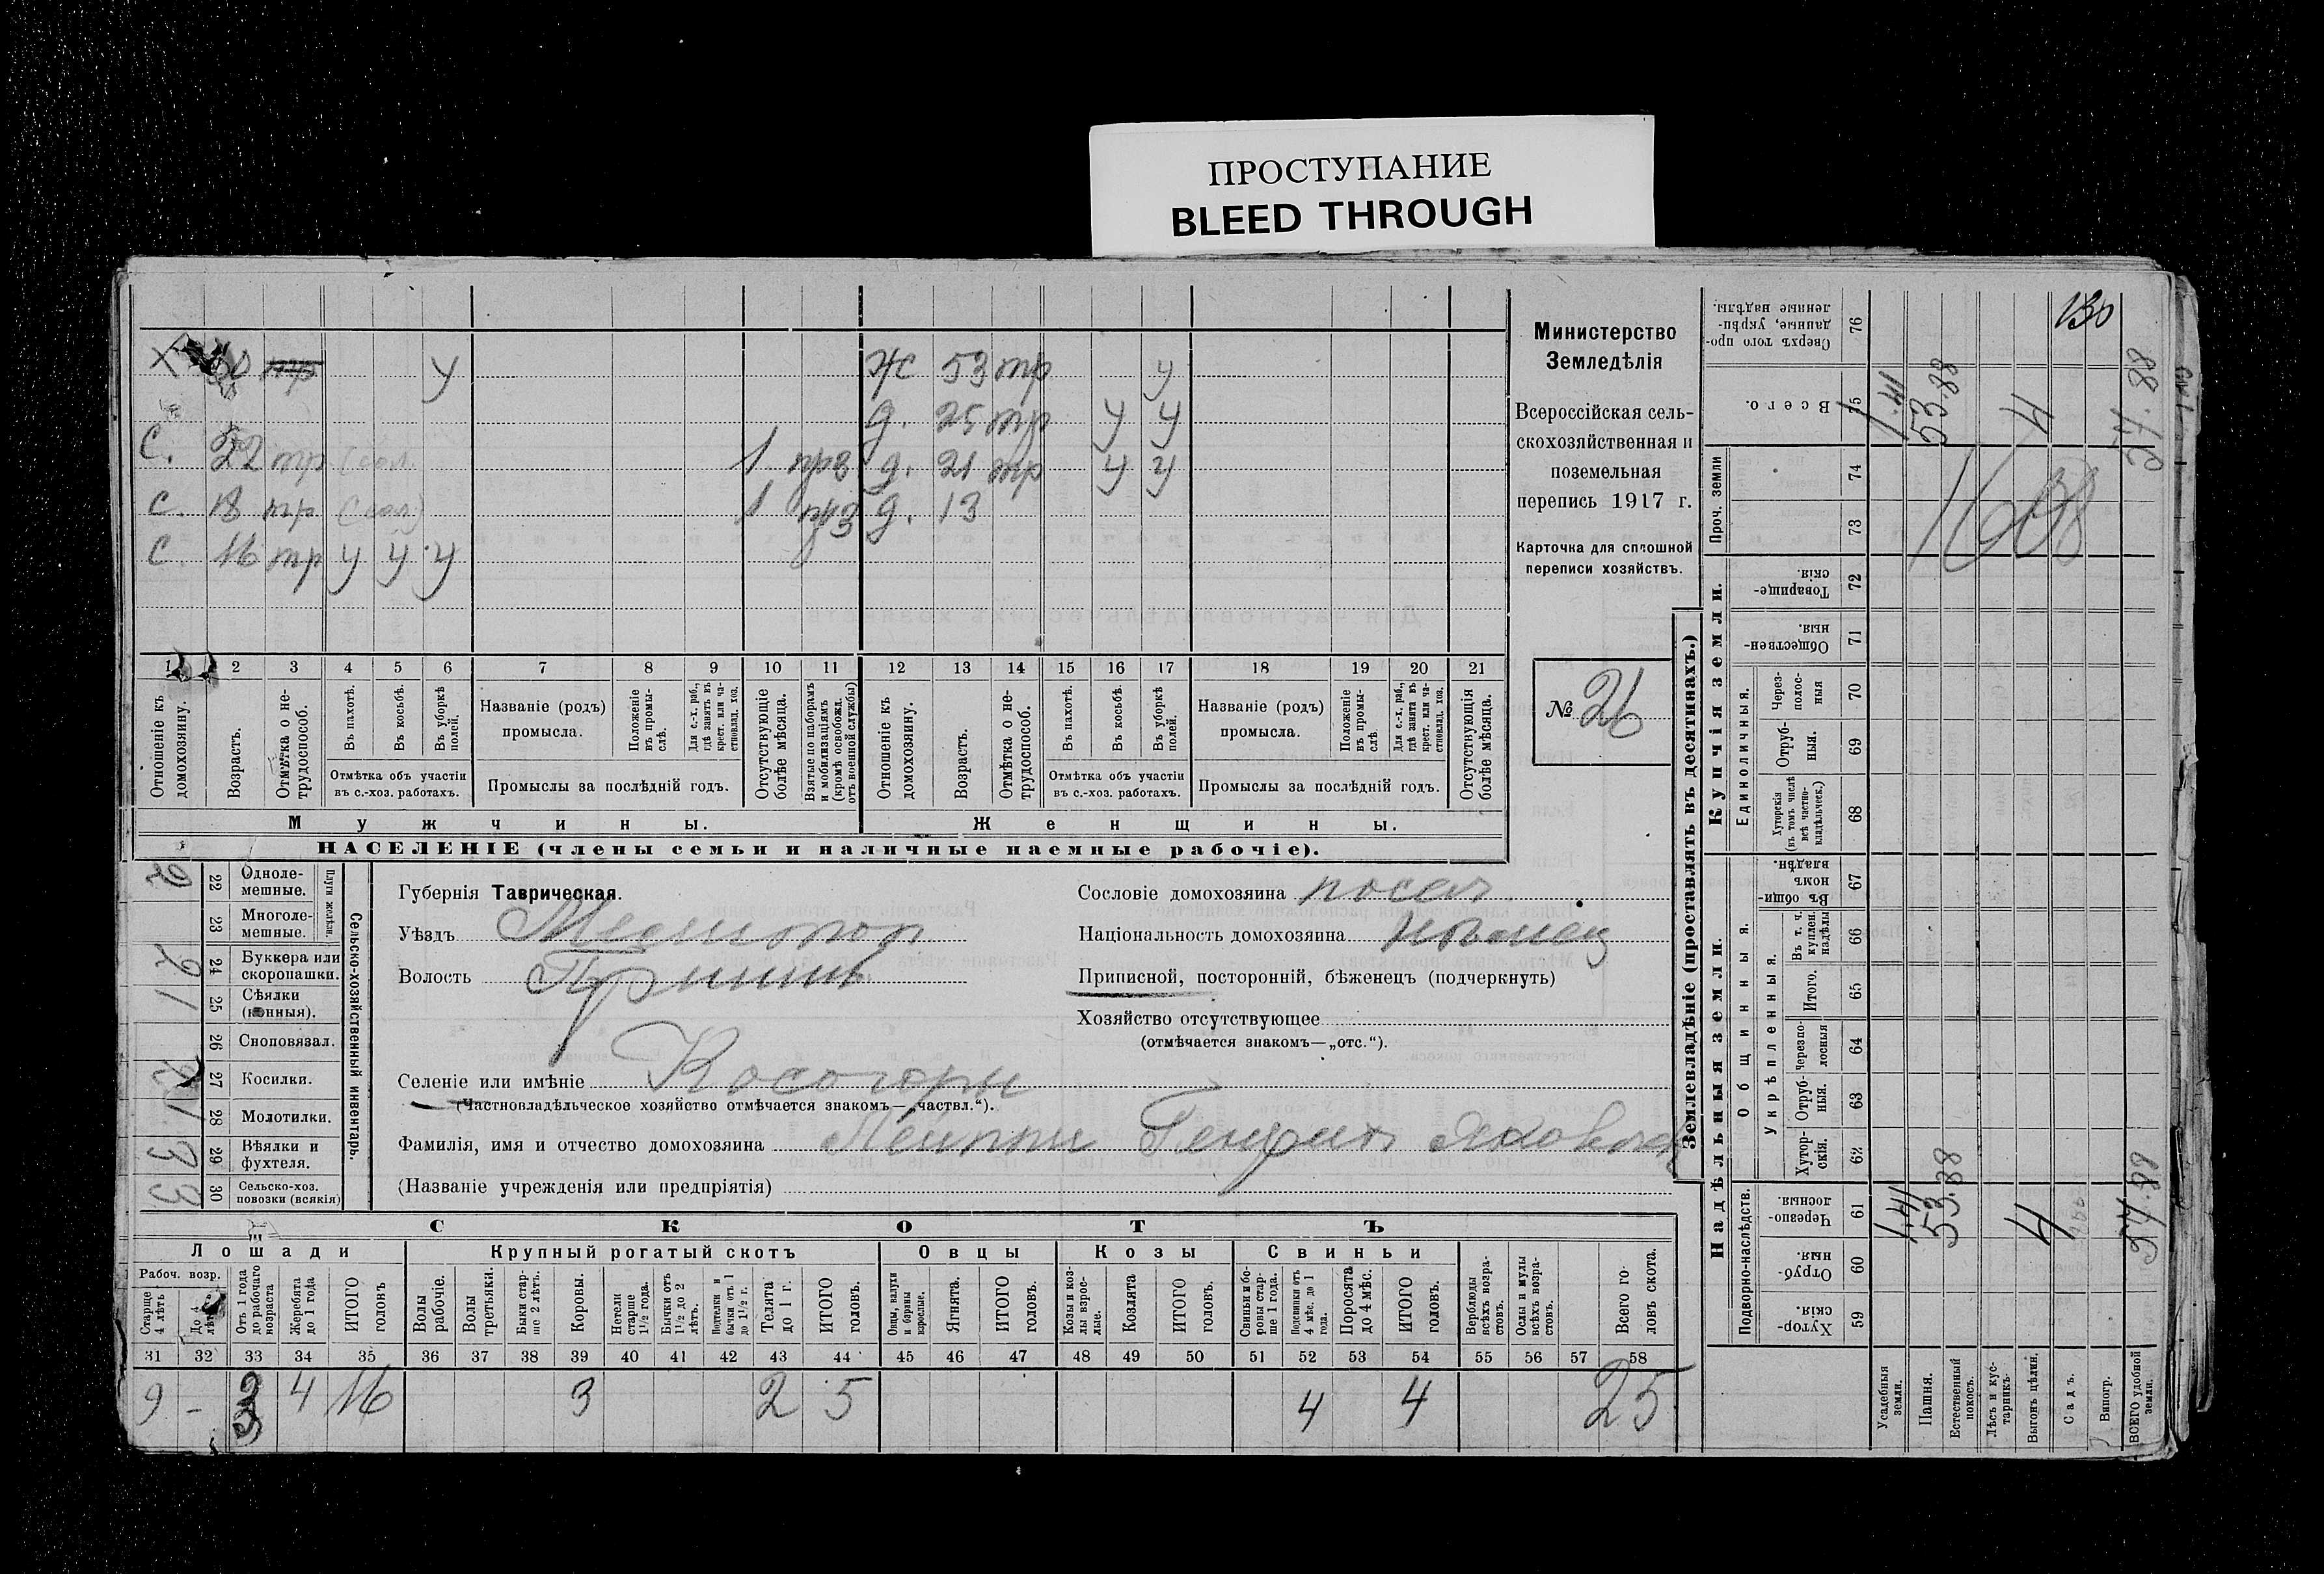 ПРОСТУПАНИЕ
BLEED THROUGH
Х 60 тр У Ж 53 тр У
д. 25 тр У У
С. 22 тр 1 прз д. 21 тр У У
С. 18 тр 1 прз д. 13
С. 16 тр У У У
1 2 3 4 5 6 7 8 9 10 11 12 13 14 15 16 17 18 19 20 21
Отношеніе къ домохозяину.
Возрастъ.
Отмѣтка о нетрудоспособ.
Въ пахотѣ.
Въ косьбѣ.
Въ уборкѣ полей.
Отмѣтка объ участіи въ с.-хоз. работахъ.
Названіе (родъ) промысла.
Положеніе въ промыслѣ.
Для с.-х. раб., гдѣ занятъ въ крест. или частновлад. хоз.
Промыслы за послѣдній годъ.
Отсутствующіе болѣе мѣсяца.
Взятые по наборамъ и мобилизаціямъ (кромѣ освобожд. отъ военной службы)
Отношеніе къ домохозяину.
Возрастъ.
Отмѣтка о нетрудоспособ.
Въ пахотѣ.
Въ косьбѣ.
Въ уборкѣ полей.
Отмѣтка объ участіи въ с.-хоз. работахъ.
Названіе (родъ) промысла.
Положеніе въ промыслѣ.
Для с.-х. раб., гдѣ занята въ крест. или частновлад. хоз.
Промыслы за послѣдній годъ.
Отсутствующія болѣе мѣсяца.
Мужчины.
Женщины.
НАСЕЛЕНІЕ (члены семьи и наличные наемные рабочіе).
Министерство
Земледѣлія
Всероссійская сель-
скохозяйственная и
поземельная
перепись 1917 г.
Карточка для сплошной
переписи хозяйствъ.
№ 26
22 Однолемешные.
23 Многолемешные.
Плуги желѣзн.
24 Буккера или скоропашки. 2
25 Сѣялки (конныя). 1
26 Сноповязал.
27 Косилки.
28 Молотилки. 1
29 Вѣялки и фухтеля. 3
30 Сельско-хоз. повозки (всякія) 3
Сельско-хозяйственный инвентарь.
Губернія Таврическая.
Уѣздъ Мелитопол
Волость Пришиб
Селеніе или имѣніе Косогоры
(Частновладѣльческое хозяйство отмѣчается знакомъ—„частвл.“).
Фамилія, имя и отчество домохозяина Генрих Яковлев
(Названіе учрежденія или предпріятія)
Сословіе домохозяина посел.
Національность домохозяина нѣмец
Приписной, посторонній, бѣженецъ (подчеркнуть)
Хозяйство отсутствующее
(отмѣчается знакомъ—„отс.“).
СКОТЪ
Лошади
Крупный рогатый скотъ
Овцы
Козы
Свиньи
Рабоч. возр.
Старше 4 лѣтъ
До 4 лѣтъ
Отъ 1 года до рабочаго возраста
Жеребята до 1 года
ИТОГО головъ
Волы рабочіе.
Волы третьяки.
Быки старше 2 лѣтъ.
Коровы.
Нетели старше 1½ года.
Бычки отъ 1½ до 2 лѣтъ.
Подтелки и бычки отъ 1 до 1½ г.
Телята до 1 г.
ИТОГО головъ.
Овцы, валухи и бараны взрослые.
Ягнята.
ИТОГО головъ.
Козы и козлы взрослые.
Козлята
ИТОГО головъ.
Свиньи и боровы старше 1 года.
Подсвинки отъ 4 мѣс. до 1 года.
Поросята до 4 мѣс.
ИТОГО головъ.
Верблюды всѣхъ возрастовъ.
Ослы и мулы всѣхъ возрастовъ.
Всего головъ скота.
31 32 33 34 35 36 37 38 39 40 41 42 43 44 45 46 47 48 49 50 51 52 53 54 55 56 57 58
9 - 3 4 16 3 2 5 4 4 25
Землевладѣніе (проставлять въ десятинахъ.)
Надѣльныя земли.
Купчія земли.
Проч. земли
Подворно-наслѣдств.
Общинныя.
Укрѣпленныя.
Единоличныя.
Сверхъ того проданные, укрѣпленные надѣлы. 76
Всего. 75
74
73
Товарищескія. 72
Общественныя. 71
Черезполосныя 70
Отрубныя. 69
Хуторскія (въ томъ числѣ всѣ частновладѣльческ.) 68
Въ общинномъ владѣн. 67
Въ т. ч. куплен. надѣлы 66
Итого. 65
Черезполосныя 64
Отрубныя. 63
Хуторскія. 62
Черезполосныя. 61
Отрубныя. 60
Хуторскія. 59
Усадебныя земли.
Пашня.
Естественный покосъ.
Лѣсъ и кустарникъ.
Выгонъ цѣлин.
Садъ.
Виногр.
ВСЕГО удобной земли.
130
1.41 53.88 4
1.41 53.88 4